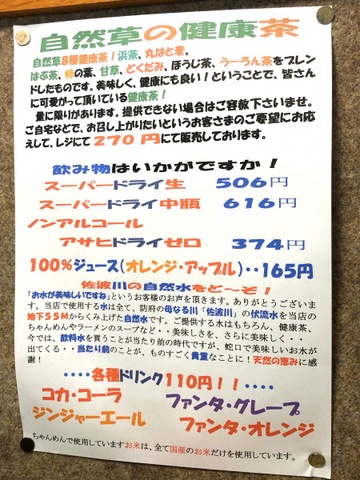 自然草の健康茶
自然草8種健康茶！浜茶、丸はと麦、
はぶ茶、柿の葉、甘草、どくだみ、ほうじ茶、うーろん茶をブレン
ドしたものです。美味しく、健康にも良い！ということで、皆さん
に可愛がって頂いている健康茶！
量に限りがあります。提供できない場合はご容赦下さいませ。
ご自宅などで、お召し上がりたいというお客さまのご要望にお応
えして、レジにて270円にて販売しております。
飲み物はいかがですか！
スーパードライ生 506円
スーパードライ中瓶 616円
ノンアルコール
アサヒドライゼロ 374円
100％ジュース（オレンジ・アップル）・・165円
佐波川の自然水をど～ぞ！
「お水が美味しいですね」というお客様のお声を頂きます。ありがとうございま
す。当店で使用する水は全て、防府の母なる川「佐波川」の伏流水を当店の
地下55Mからくみ上げた自然水です。ご提供する水はもちろん、健康茶、
ちゃんめんやラーメンのスープなど・・美味しさを、さらに美味しく・・
今では、飲料水を買うことが当たり前の時代ですが、蛇口で美味しいお水が
出てくる・・当たり前のことが、ものすごく貴重なことに！天然の恵みに感
謝！
・・・・・各種ドリンク110円！！・・・・・
コカ・コーラ ファンタ・グレープ
ジンジャーエール ファンタ・オレンジ
ちゃんめんで使用していますお米は、全て国産のお米だけを使用しています。